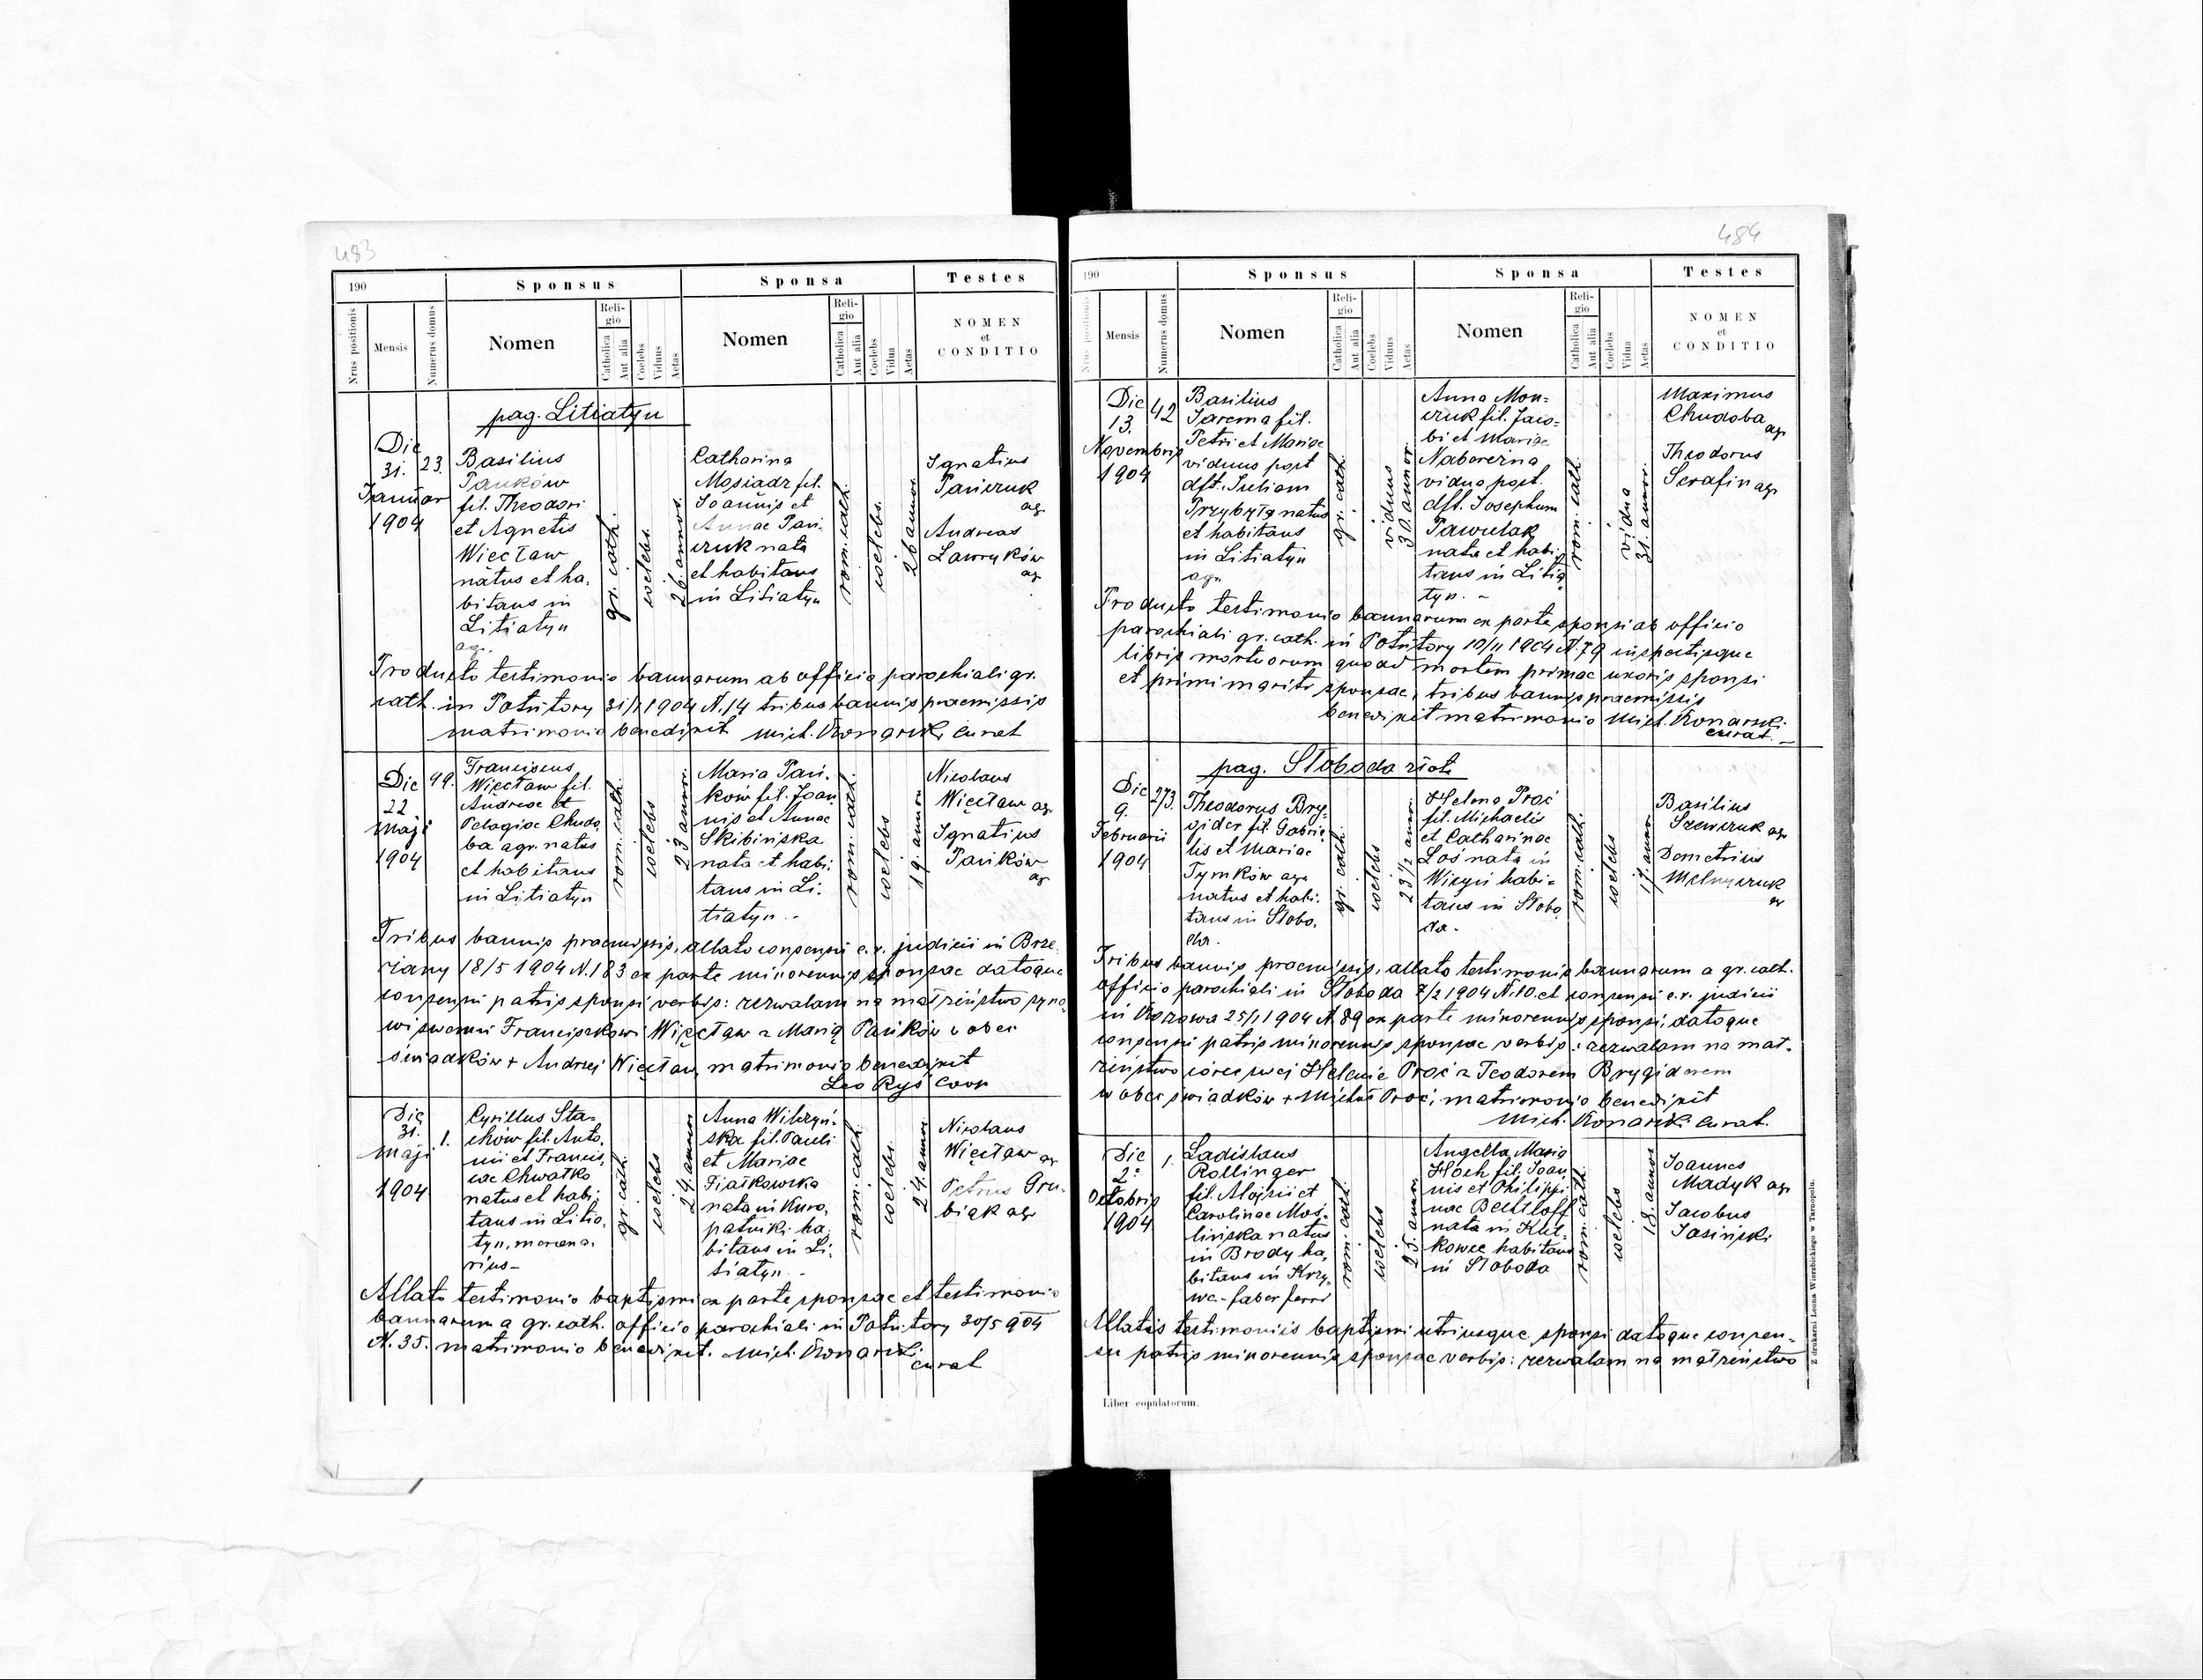 483
190
Sponsus
Sponsa
Testes
Nrus positionis
Mensis
Numerus domus
Nomen
Religio
Catholica
Aut alia
Coelebs
Viduus
Aetas
Nomen
Religio
Catholica
Aut alia
Coelebs
Vidua
Aetas
NOMEN
et
CONDITIO
pag. Litiatyn
Die
31.
Januar
1904
23.
Basilius
Pańków
fil. Theodori
et Agnetis
Więcław
natus et ha-
bitans in
Litiatyn
agr.
gr. cath.
coelebs.
26. annor.
Catharina
Mosiadz fil.
Joannis et
Annae Pań-
czuk nata
et habitans
in Litiatyn
rom. cath.
coelebs.
26 annor.
Ignatius
Pańczuk
agr.
Andreas
Lawryków
agr.
Producto testimonio bannorum ab officio parochiali gr.
cath. in Potutory 31/1 1904 N. 14 tribus bannis praemissis
matrimonio benedixit Mich. Konarski curat
Die
22
Maji
1904
49.
Franciscus
Więcław fil.
Andreae et
Pelagiae Chudo-
ba agr. natus
et habitans
in Litiatyn
rom. cath.
coelebs
23 annor.
Maria Pań-
ków fil. Joan
nis et Annae
Skibińska
nata et habi-
tans in Li-
tiatyn. -
rom. cath.
coelebs
19. annor
Nicolaus
Więcław agr.
Ignatius
Pańków
agr
Tribus bannis praemissis, allato consensu c. r. judicii in Brze-
zany 18/5 1904 N. 183 ex parte minorennis sponsae datoque
consensu patris sponsi verbis: zezwalam na małżeństwo syno-
wi swemu Franciszkowi Więcław z Marią Pańków w obec
świadków + Andrzej Więcław, matrimonio benedixit
Leo Ryś coop
Die
31.
Maji
1904
1.
Cyrillus Sta-
chów fil. Anto-
nii et Francis-
cae Chwałko
natus et habi-
tans in Litia-
tyn, mercena-
rius-
gr. cath.
coelebs
24. annor
Anna Wilczyń-
ska fil. Pauli
et Mariae
Fiałkowska
nata in Kuro-
patniki ha-
bitans in Li-
tiatyn. -
rom. cath.
coelebs.
24. annor
Nicolaus
Więcław agr
Petrus Gru-
biak agr
Allato testimonio baptismi ex parte sponsae et testimonio
bannorum a gr. cath. officio parochiali in Potutory 30/5 904
N. 35. matrimonio benedixit. Mich. Konarski
curat
484
190
Sponsus
Sponsa
Testes
Nrus positionis
Mensis
Numerus domus
Nomen
Religio
Catholica
Aut alia
Coelebs
Viduus
Aetas
Nomen
Religio
Catholica
Aut alia
Coelebs
Vidua
Aetas
NOMEN
et
CONDITIO
Die
13.
Novembris
1904
42
Basilius
Jarema fil.
Petri et Mariae
viduus post
dft. Juliam
Przybyła natus
et habitans
in Litiatyn
agr.
gr. cath.
viduus
30. annor.
Anna Mon-
czuk fil. Jaco-
bi et Mariae
Naberezna
vidua post.
dft. Josephum
Pawulak
nata et habi-
tans in Litia
tyn. -
rom. cath.
vidua
31. annor.
Maximus
Chudoba
agr
Theodorus
Serafin agr
Producto testimonio bannorum ex parte sponsi ab officio
parochiali gr. cath. in Potutory 10/11 1904 N. 79 inspectisque
libris mortuorum quoad mortem primae uxoris sponsi
et primi mariti sponsae, tribus bannis praemissis
benedixit matrimonio Mich. Konarski
curat. -
pag. Słoboda złota
Die
9.
Februarii
1904
273.
Theodorus Bry-
gider fil. Gabrie-
lis et Mariae
Tymków agr
natus et habi-
tans in Słobo-
da.
gr. cath.
coelebs
23 1/2 annor.
Helena Proć
fil. Michaelis
et Catharinae
Łoś nata in
Wiczyń habi-
tans in Słobo-
da.
rom. cath.
coelebs
17. annor
Basilius
Szewczuk agr
Demetrius
Melnyczuk
agr
Tribus bannis praemissis, allato testimonio bannorum a gr. cath.
officio parochiali in Słoboda 7/2 1904 N. 10. et consensu c. r. judicii
in Kozowa 25/1 1904 N. 89 ex parte minorennis sponsi, datoque
consensu patris minorennis sponsae verbis: zezwalam na mał-
żeństwo córce swej Helenie Proć z Teodorem Brygiderem
w obec świadków + Michał Proć, matrimonio benedixit
Mich. Konarski curat.
Die
2
Octobris
1904
1.
Ladislaus
Rollinger
fil. Alojsii et
Carolinae Moś-
lińska natus
in Brody ha-
bitans in Krzy-
we - faber ferri
rom. cath.
coelebs
25. annor
Angella Maria
Hoch fil. Joan
nis et Philippi-
nae Bechtloff
nata in Kut-
kowce habitans
in Słoboda
rom. cath.
coelebs
18. annor
Joannes
Madyk agr
Jacobus
Jasiński
Allatis testimoniis baptismi utriusque sponsi datoque consen-
su patris minorennis sponsae verbis: zezwalam na małżeństwo
Liber copulatorum.
Z drukarni Leona Wierzbickiego w Tarnopolu.